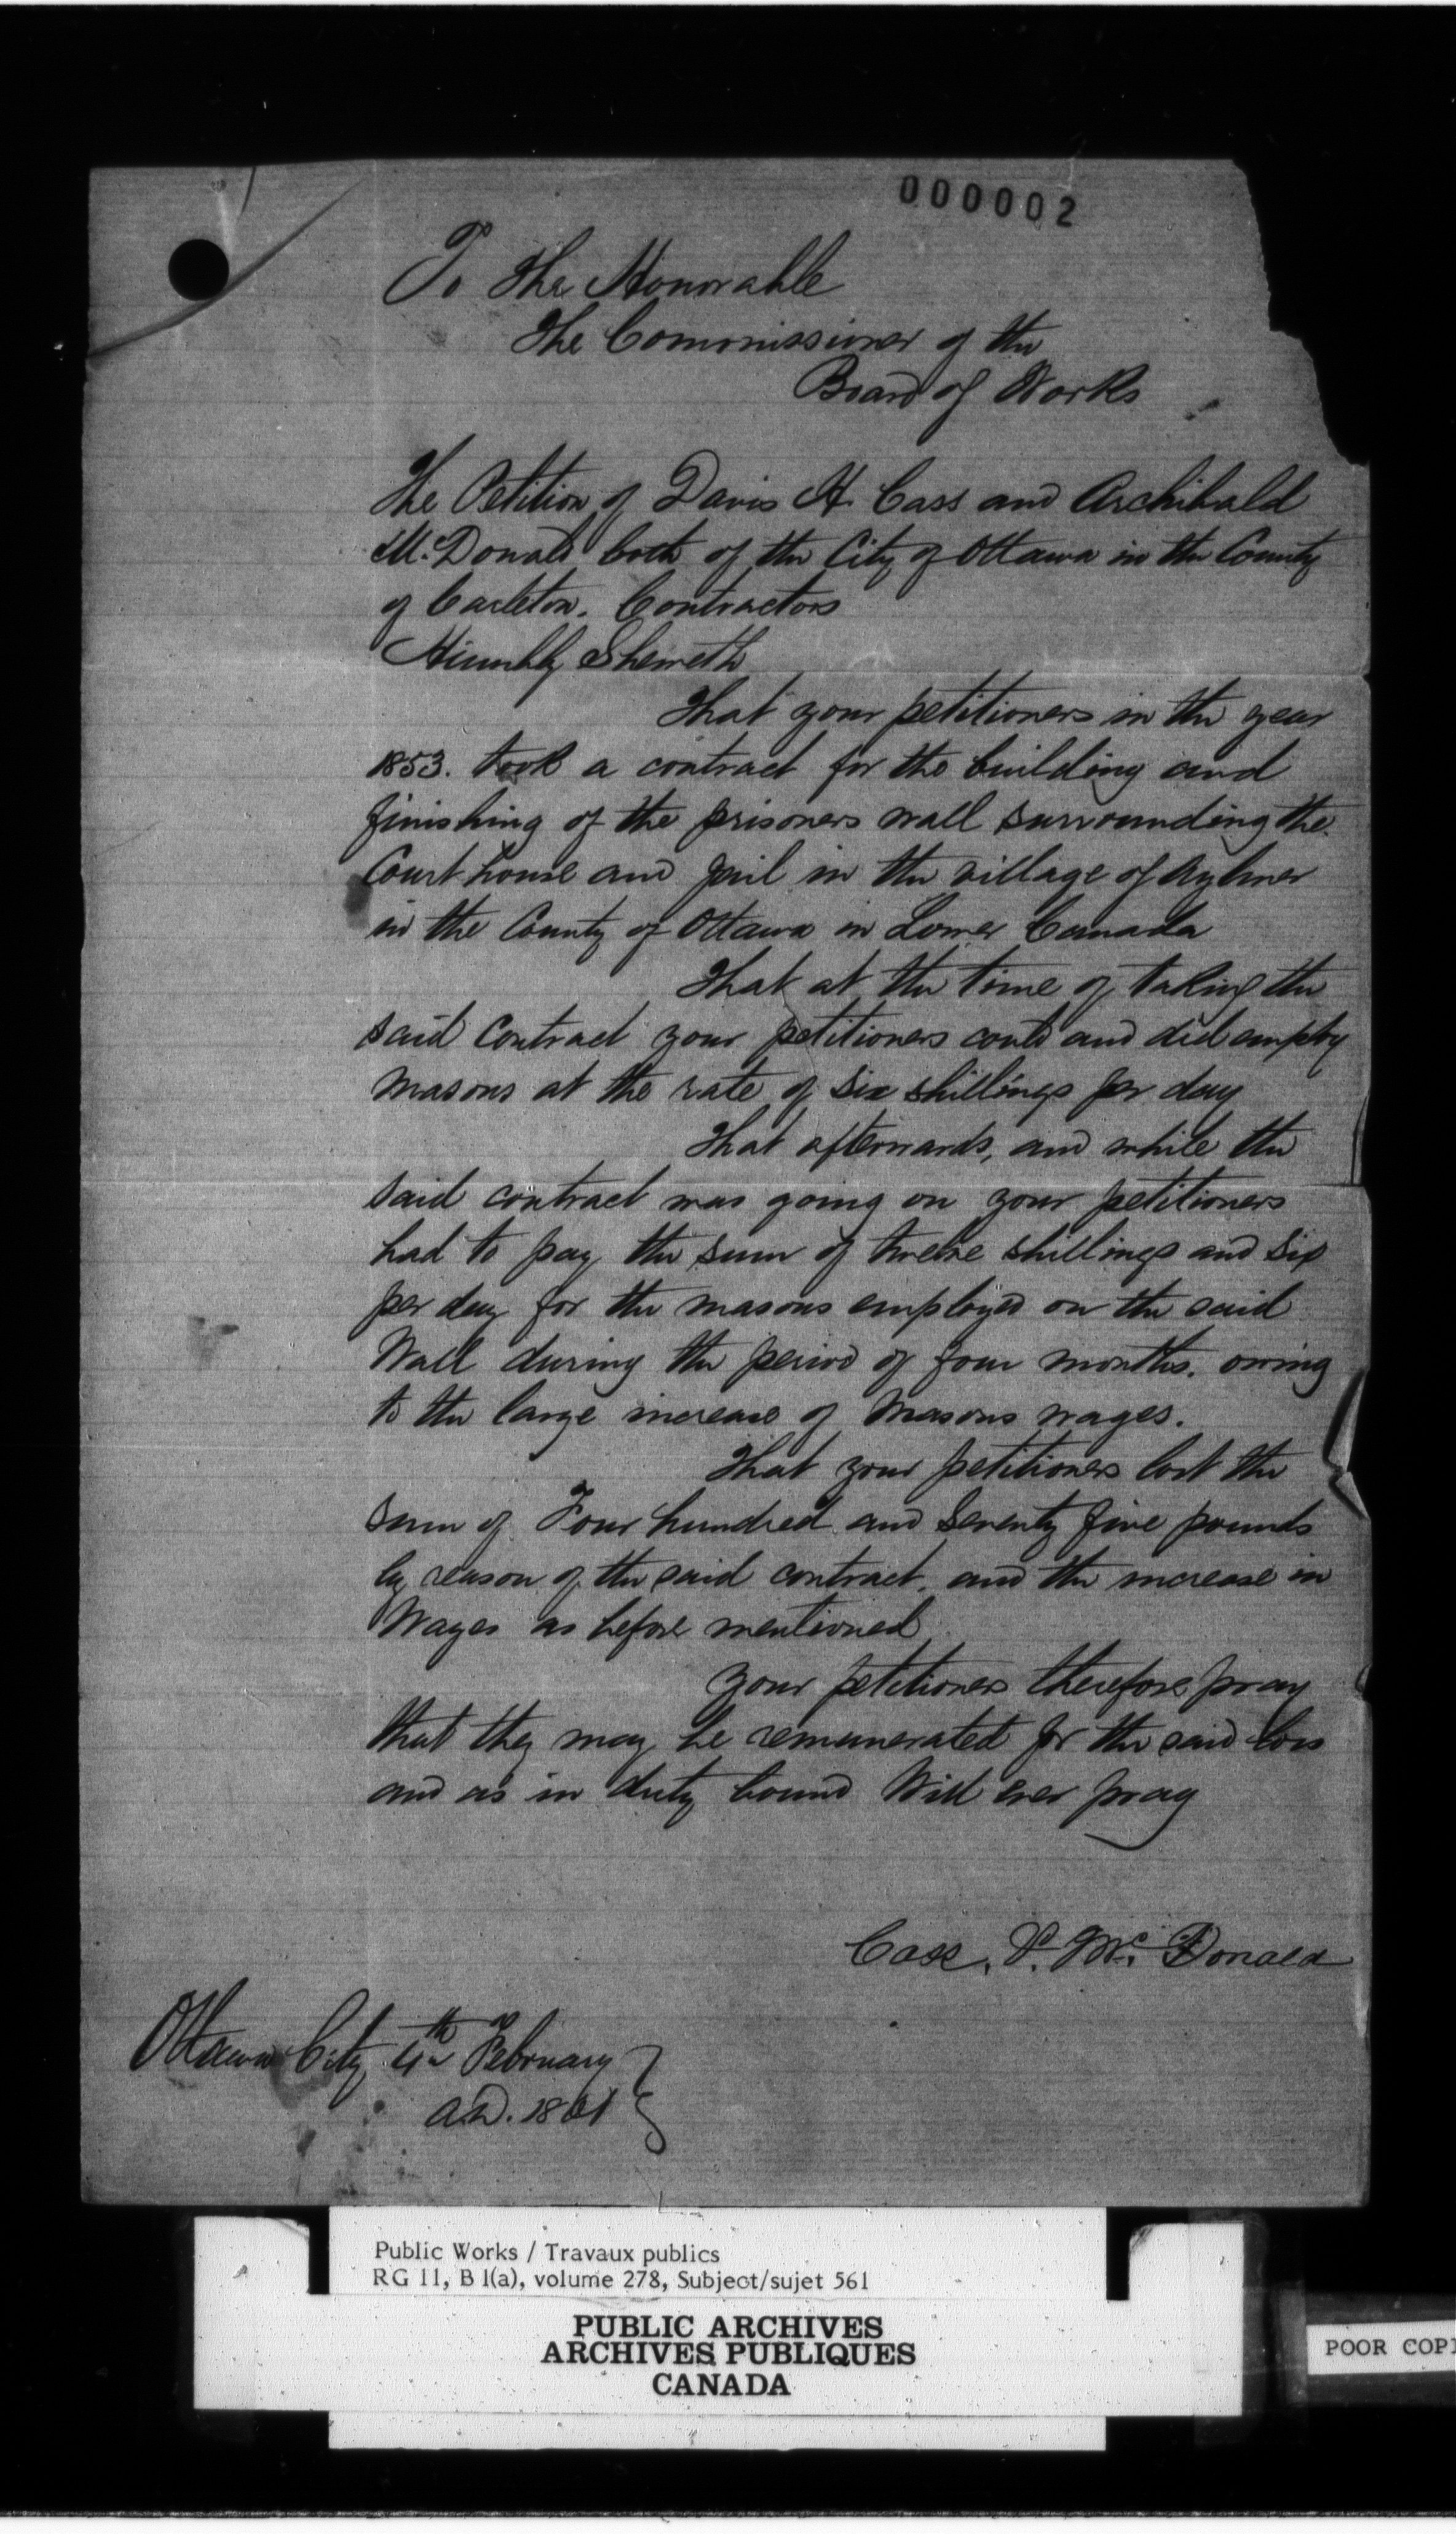 000002
To The Honorable
The Commissioner of the
Board of Works
The Petition of Davis H. Cass and Archibald
McDonald both of the City of Ottawa in the County
of Carleton. Contractors
Humbly Sheweth
That your petitioners in the year
1853. took a contract for the building and
finishing of the prisoners wall surrounding the
Court house and jail in the village of Aylmer
in the County of Ottawa in Lower Canada
That at the time of taking the
said Contract your petitioners could and did employ
masons at the rate of six shillings per day
That afterwards, and while the
said contract was going on your petitioners
had to pay the sum of twelve shillings and six
per day for the masons employed on the said
Wall during the period of four months. owing
to the large increase of Masons wages.
That your petitioners lost the
sum of Four hundred and Seventy five pounds
by reason of the said contract, and the increase in
Wages as before mentioned
Your petitioners therefore pray
that they may be remunerated for the said loss
and as in duty bound Will ever pray
Cass. & Mc. Donald
Ottawa City 4th February
A.D. 1861
Public Works / Travaux publics
RG 11, B 1(a), volume 278, Subject/sujet 561
PUBLIC ARCHIVES
ARCHIVES PUBLIQUES
CANADA
POOR COPI